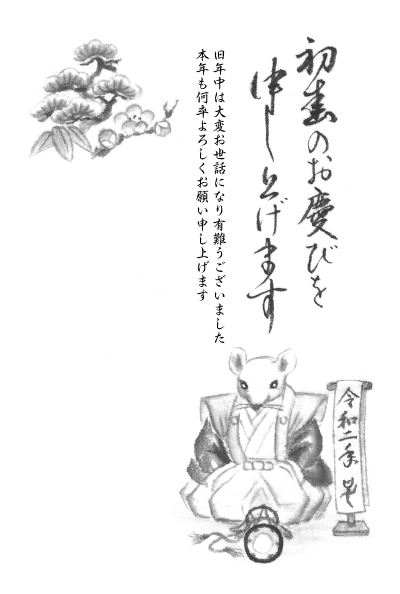 初春のお慶びを
申し上げます
旧年中は大変お世話になり有難うございました
本年も何卒よろしくお願い申し上げます
令和二年